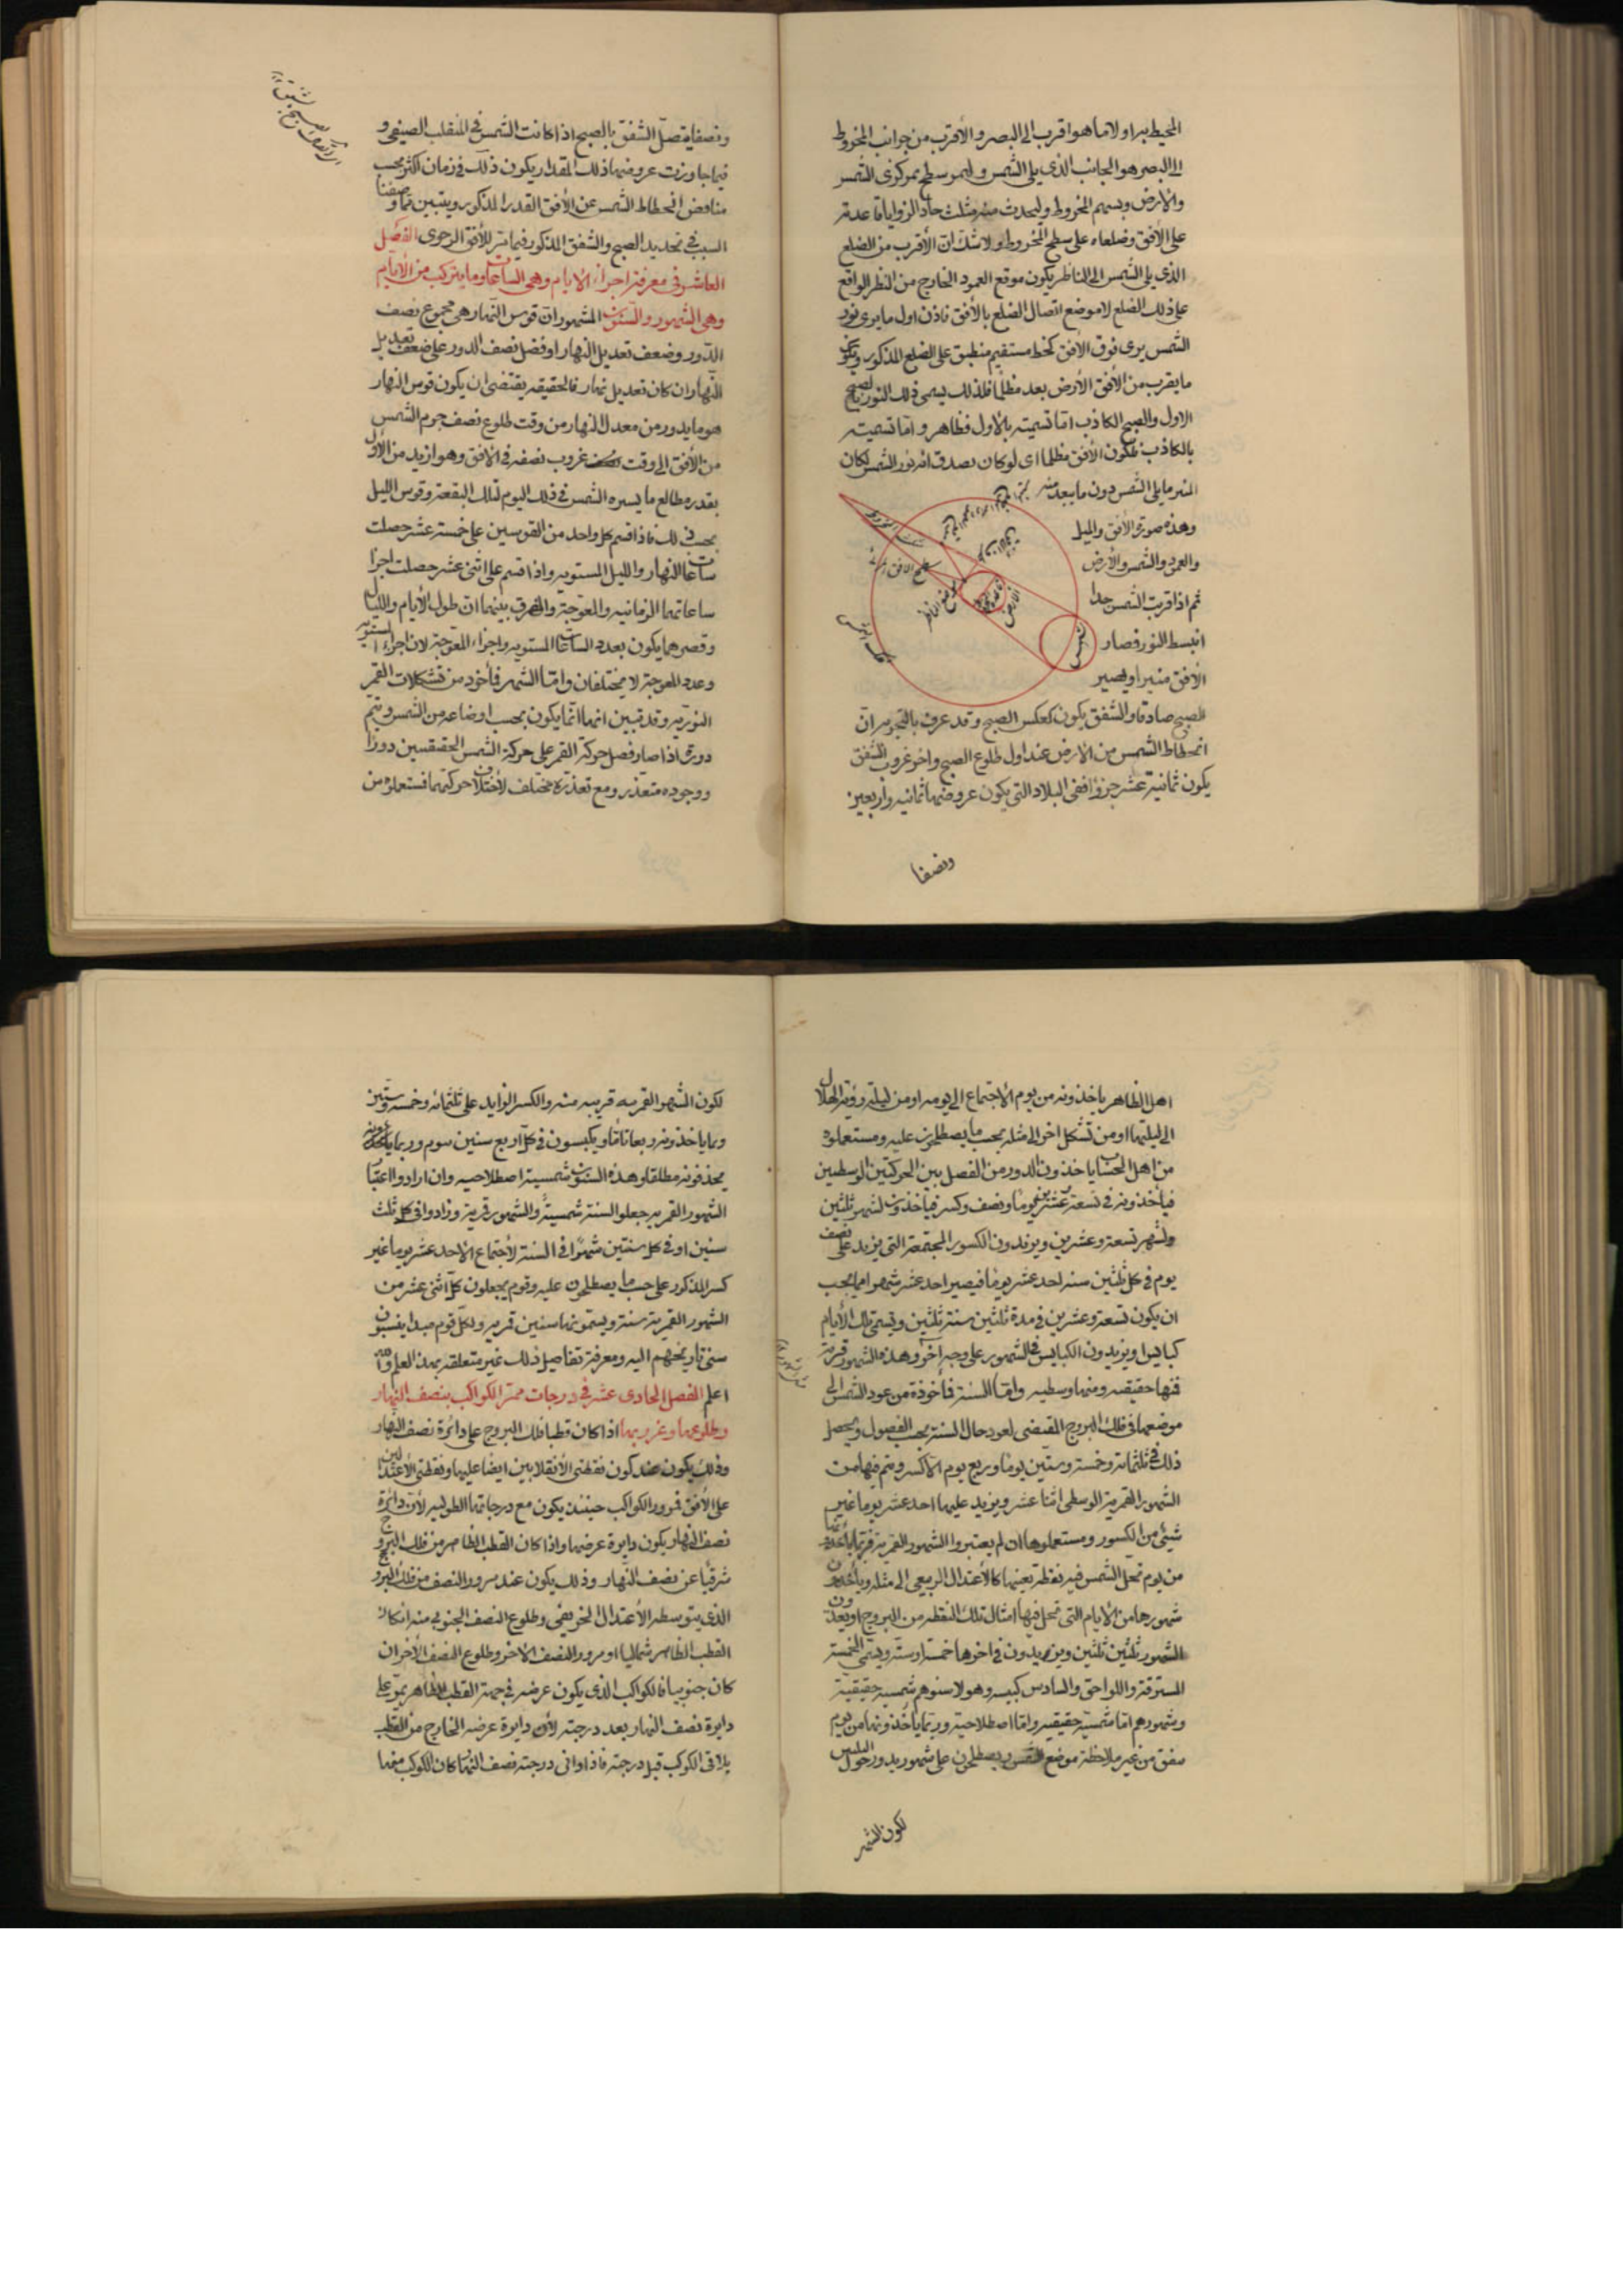 المحيط به اولا ما هو اقرب الى البصر والأقرب من جوانب المخروط
الى البصر هو الجانب الذى يلى الشمس وليمر سطح بمركزى الشمس
والارض وبسهم المخروط وليحدث منه مثلث حاد الزوايا قاعدته
على الأفق وضلعاه على سطح المخروط ولا شك ان الأقرب من الضلع
الذى يلى الشمس الى الناظر يكون موقع العمود الخارج من النظر الواقع
على ذلك الضلع لا موضع اتصال الضلع بالأفق فاذن اول ما يرى نور
الشمس يرى فوق الافق كخط مستقيم منطبق على الضلع المذكور ويكون
ما يقرب من الأفق الأرض بعد مظلما فلذلك يسمى ذلك النور بالصبح
الاول والصبح الكاذب اما تسميته بالأول فظاهر واما تسميته
بالكاذب فلكون الأفق مظلما اى لو كان يصدق انه نور الشمس لكان
المنير ما يلى الشمس دون ما يبعد منه
وهذه صورة الأفق والليل
والعمود والشمس والأرض
ثم اذا قربت الشمس جدا
انبسط النور فصار
الأفق منيرا ويصير
الشمس
الأرض
الصبح صادقا والشفق يكون كعكس الصبح وقد عرف بالتجربة ان
انحطاط الشمس من الارض عند اول طلوع الصبح واخر غروب الشفق
يكون ثمانية عشر جزؤا ففى البلاد التى يكون عروضها ثمانية واربعين
ونصفا
ونصفا يتصل الشفق بالصبح اذا كانت الشمس فى المنقلب الصيفى و
فيما جاوزت عروضها ذلك المقدار يكون ذلك فى زمان اكثر بحسب
تناقص انحطاط الشمس عن الأفق القدر المذكور ويتبين مما وصفنا
السبب فى تحديد الصبح والشفق المذكور فيما مر للأفق الرحوى الفصل
العاشر فى معرفة اجزاء الايام وهى الساعات وما يتركب من الأيام
وهى الشهور والسنون المشهور ان قوس النهار هى مجموع نصف
الدور وضعف تعديل النهار او فضل نصف الدور على ضعف تعديل
النهار ان كان تعديل نهار فالحقيقة يقتضى ان يكون قوس النهار
هو ما يدور من معدل النهار من وقت طلوع نصف جرم الشمس
من الأفق الى وقت غروب نصفه فى الافق وهو ازيد من الأول
بقدر مطالع ما يسيره الشمس فى ذلك اليوم لتلك البقعة وقوس الليل
بحسب ذلك فاذا قسم كل واحد من القوسين على خمسة عشر حصلت
ساعات النهار والليل المستوية واذا قسم على اثنى عشر حصلت اجزا
ساعاتهما الزمانية والمعوجة والفرق بينهما ان طول الأيام والليالى
وقصرهما يكون بعدد الساعات المستوية واجزاء المعوجة لان اجزاء المستوية
وعدد المعوجة لا يختلفان واما الشهر فمأخوذ من تشكلات القمر
النورية وقد تبين انها انما يكون بحسب اوضاعه من الشمس ويتم
دورة اذا صار فضل حركة القمر على حركة الشمس الحقيقيين دورا
ووجوده متعذر ومع تعذره مختلف لأختلاف حركتهما فمستعملوه من
اهل الظاهر ياخذونه من يوم الاجتماع الى يومه او من ليلة رؤية الهلال
الى ليلتها او من تشكل اخر الى مثله بحسب ما يصطلحون عليه ومستعملوه
من اهل الحساب ياخذون الدور من الفصل بين الحركتين الوسطيين
فياخذونه فى تسعة وعشرين يوما ونصف وكسر فياخذون لشهر ثلثين
ولشهر تسعة وعشرين ويزيدون الكسور المجتمعة التى يزيد على نصف
يوم فى كل ثلثين سنة احد عشر يوما فيصير احد عشر شهرا مما يجب
ان يكون تسعة وعشرين فى مدة ثلثين سنة ثلثين ويسمى تلك الأيام
كبايس او يزيدون الكبايس فى الشهور على وجه آخر وهذه الشهور قمرية
فمنها حقيقية ومنها وسطية واما السنة فمأخوذة من عود الشمس الى
موضعها فى فلك البروج المقتضى لعود حال السنة بحسب الفصول ويحصل
ذلك فى ثلثمائة وخمسة وستين يوما وربع يوم الا كسر ويتم فيها من
الشهور القمرية الوسطى اثنا عشر ويزيد عليها احد عشر يوما غير
شيئ من الكسور ومستعملوها ان لم يعتبروا الشهور القمرية فربما ياخذونها
من يوم تحل الشمس فيه نقطة بعينها كالأعتدال الربيعى الى مثله وياخذون
شهورها من الأيام التى تحل فيها امثال تلك النقطة من البروج او يعدون
الشهور ثلثين ثلثين ويزيدون فى اخرها خمسة او ستة ويسمى الخمسة
المسترقة واللواحق والسادس كبيسة وهولا سنوهم شمسية حقيقية
وشهورهم اما شمسية حقيقية واما اصطلاحية وربما ياخذونها من يوم
يتفق من غير ملاحظة موضع الشمس ويصطلحون على شهور يدور حول
لكون الشهر
لكون الشهو القمرية قريبة منه والكسر الزايد على ثلثمائة وخمسة وستين
ربما ياخذونه ربعا تاما ويكبسون فى كل اربع سنين بيوم وربما
يحذفونه مطلقا وهذه السنون شمسية اصطلاحية وان ارادوا اعتبار
الشهور القمرية جعلوا السنة شمسية والشهور قمرية وزادوا فى كل ثلث
سنين او فى كل سنتين شهرا فى السنة لأجتماع الاحد عشر يوما غير
كسر المذكور على حسب ما يصطلحون عليه وقوم يجعلون كل اثنى عشر من
الشهور القمرية سنة ويسمونها سنين قمرية ولكل قوم مبدا ينسبون
سنى تاريخهم اليه ومعرفة تفاصيل ذلك غير متعلقة بهذ العلم والله
اعلم الفصل الحادى عشر فى درجات ممر الكواكب بنصف النهار
وطلوعها وغروبها اذا كان قطبا فلك البروج على دائرة نصف النهار
وذلك يكون عند كون نقطتى الأنقلابين ايضا عليها ونقطتى الأعتدالين
على الأفق فمرور الكواكب حينئذ يكون مع درجاتها الطولية لأن دائرة
نصف النهار يكون دايرة عرضها واذا كان القطب الظاهر من فلك البروج
شرقيا عن نصف النهار وذلك يكون عند مرور النصف من فلك البروج
الذى يتوسطه الأعتدال الخريفى وطلوع النصف الجنوبى منه ان كان
القطب الظاهر شماليا او مرور النصف الاخر وطلوع النصف الأخر ان
كان جنوبيا فالكواكب الذى يكون عرضه فى جهة القطب الظاهر يمر على
دايرة نصف النهار بعد درجته لأن دايرة عرضه الخارج من القطب
يلاقى الكوكب قبل درجته فاذا وافى درجته نصف النهار كان الكوكب منها